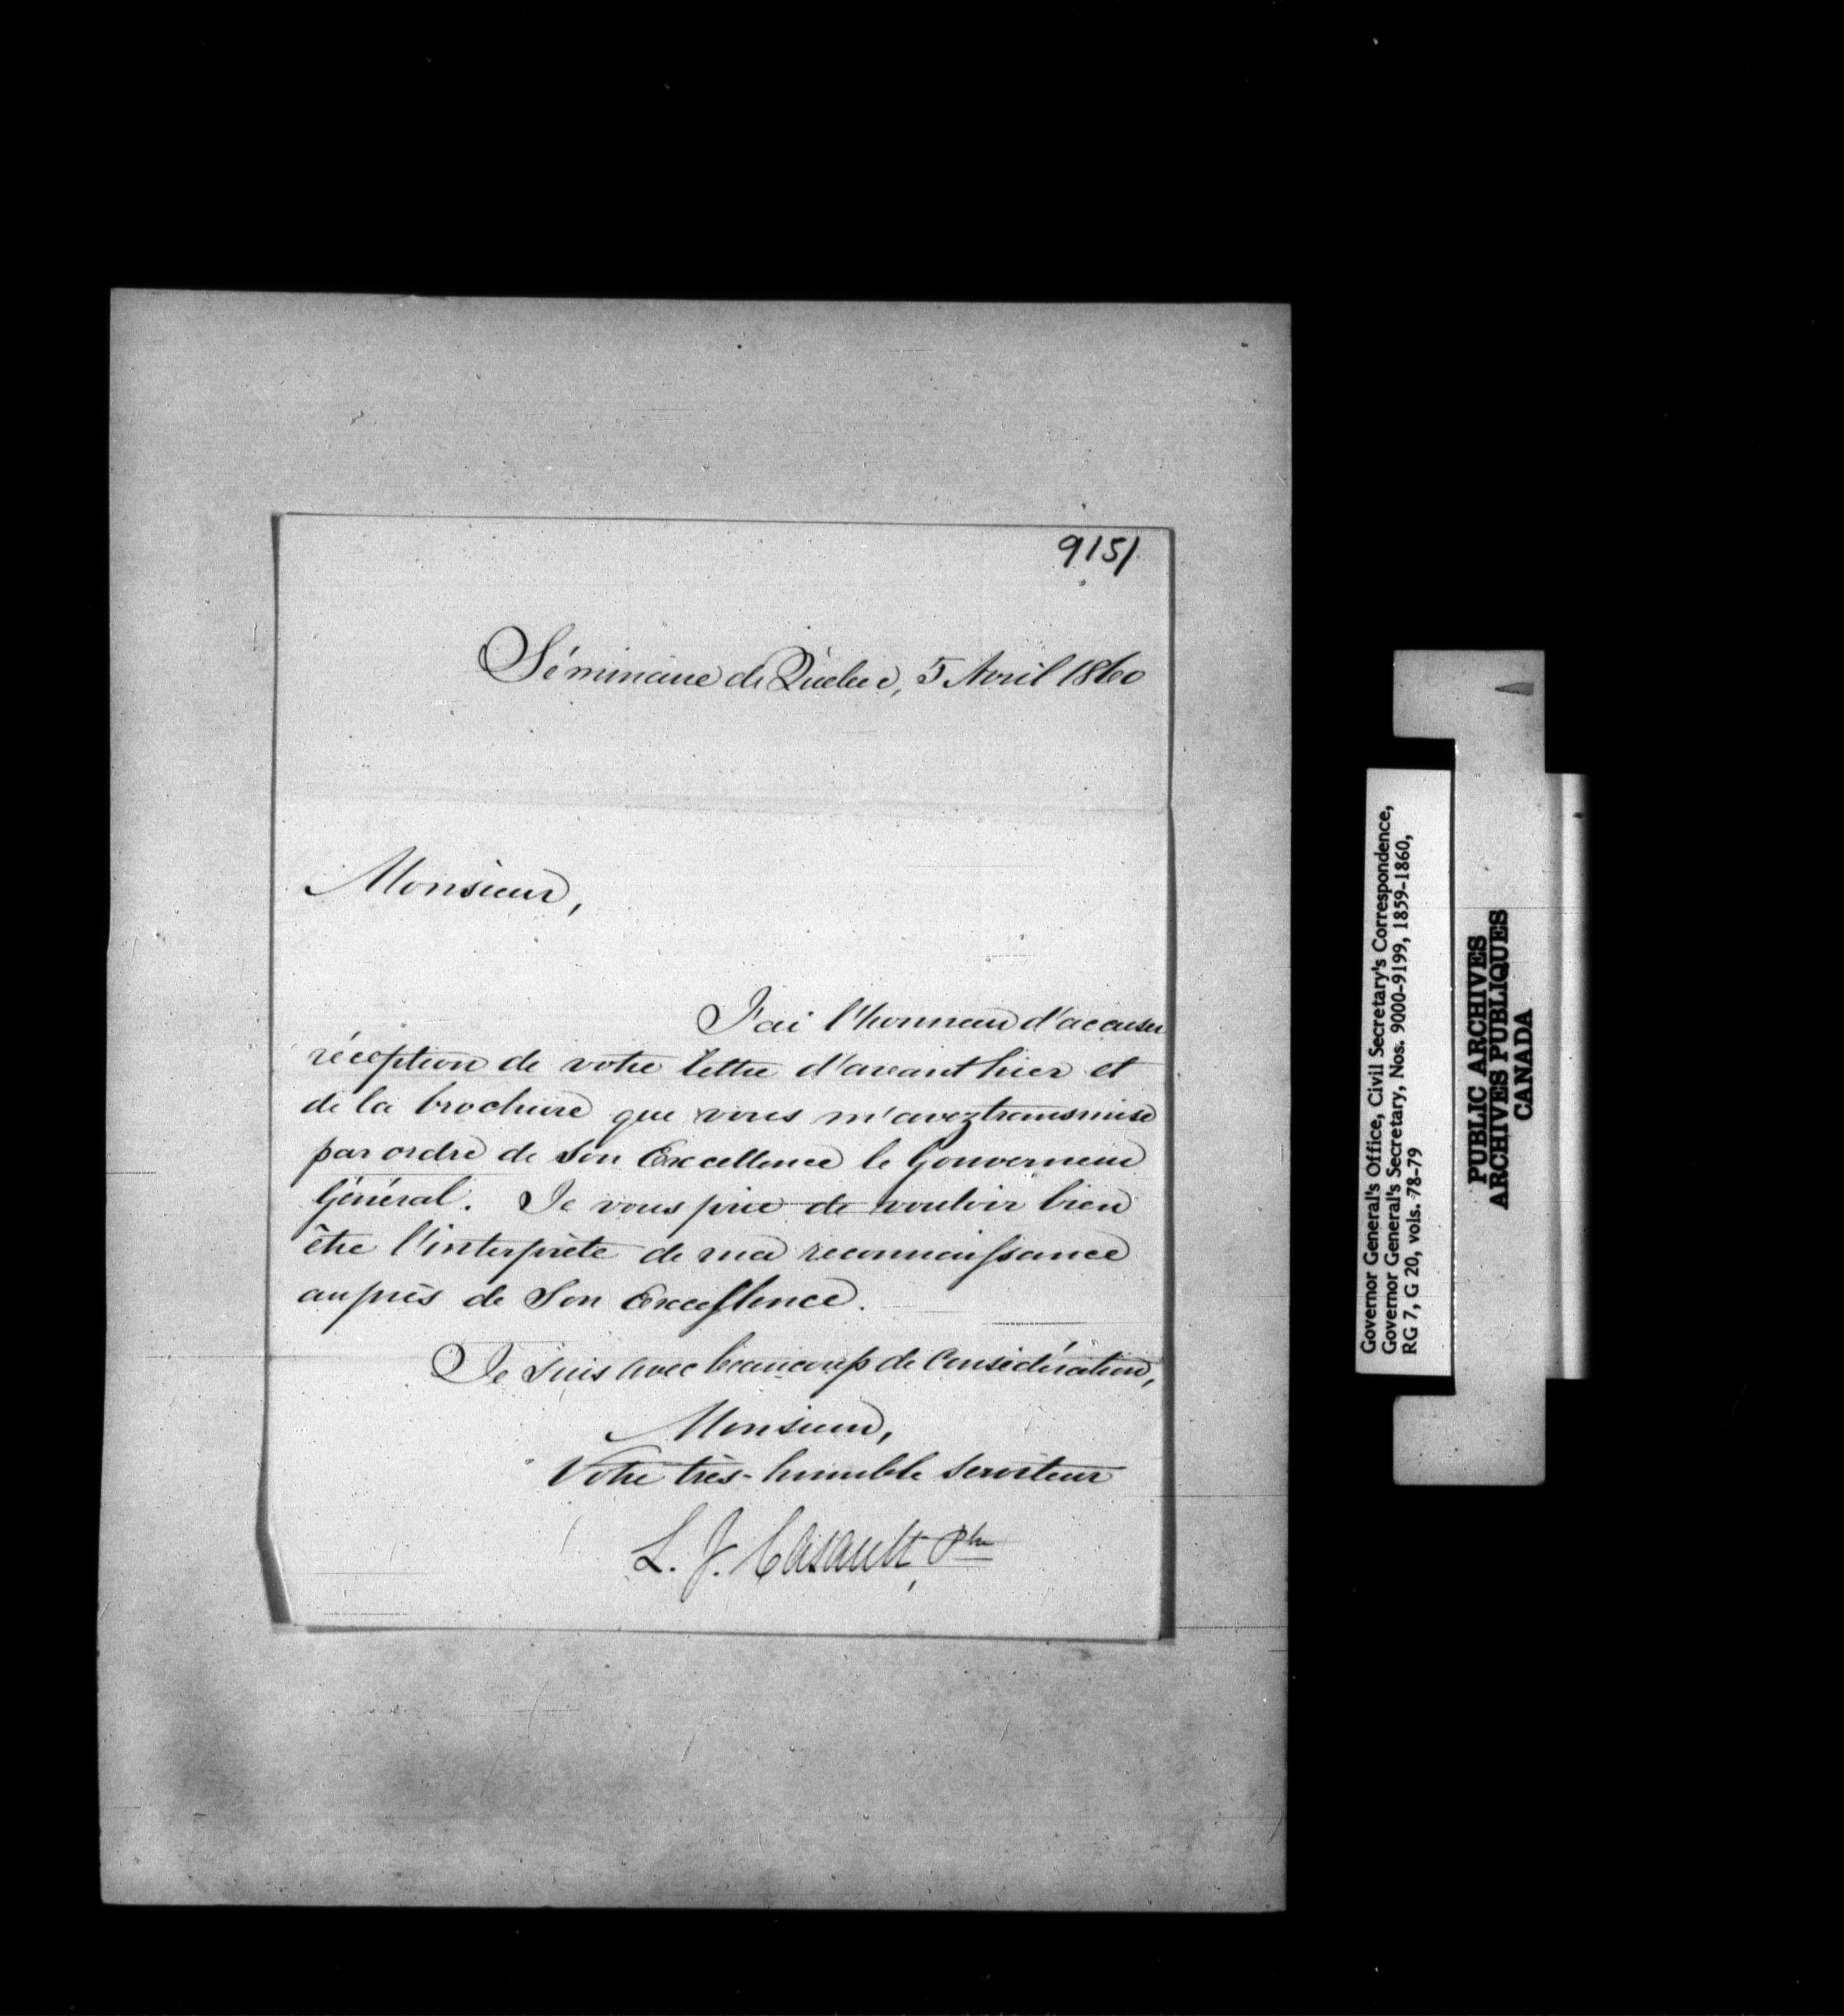 9151
Séminaire de Québec, 5 Avril 1860
Monsieur,
J'ai l'honneur d'accuser
réception de votre lettre d'avant hier et
de la brochure que vous m'avez transmise
par ordre de Son Excellence le Gouverneur
Général. Je vous prie de vouloir bien
être l'interprète de ma reconnaissance
auprès de Son Excellence.
Je suis avec beaucoup de Considération,
Monsieur,
Votre très-humble serviteur
L. J. Casault, Ptre
Governor General's Office, Civil Secretary's Correspondence,
Governor General's Secretary, Nos. 9000-9199, 1859-1860,
RG 7, G 20, vols. 78-79
PUBLIC ARCHIVES
ARCHIVES PUBLIQUES
CANADA